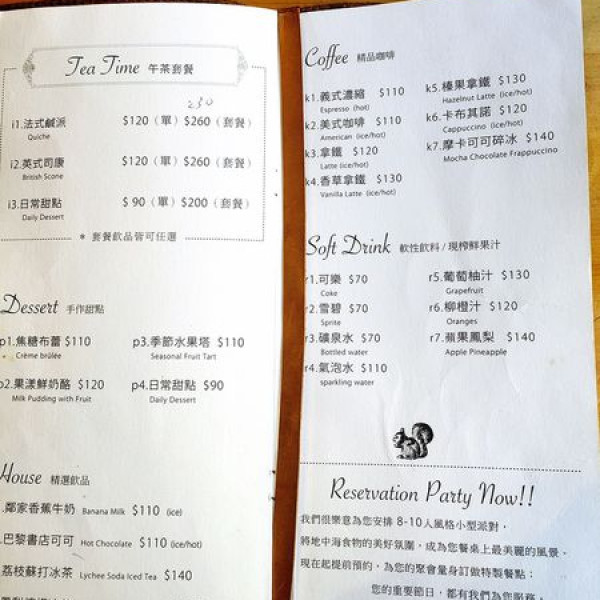 Tea Time 午茶套餐
230
i1.法式鹹派 $120 (單) $260 (套餐)
Quiche
i2.英式司康 $120 (單) $260 (套餐)
British Scone
i3.日常甜點 $ 90 (單) $200 (套餐)
Daily Dessert
* 套餐飲品皆可任選
Dessert 手作甜點
p1.焦糖布蕾 $110 p3.季節水果塔 $110
Crème brûlée Seasonal Fruit Tart
p2.果漾鮮奶酪 $120 p4.日常甜點 $90
Milk Pudding with Fruit Daily Dessert
House 精選飲品
.鄰家香蕉牛奶 Banana Milk $110 (ice)
.巴黎書店可可 Hot Chocolate $110 (ice/hot)
荔枝蘇打冰茶 Lychee Soda Iced Tea $140
Coffee 精品咖啡
k1.義式濃縮 $110
Espresso (hot)
k2.美式咖啡 $110
American (ice/hot)
k3.拿鐵 $120
Latte (ice/hot)
k4.香草拿鐵 $130
Vanilla Latte (ice/hot)
k5.榛果拿鐵 $130
Hazelnut Latte (ice/hot)
k6.卡布其諾 $120
Cappuccino (ice/hot)
k7.摩卡可可碎冰 $140
Mocha Chocolate Frappuccino
Soft Drink 軟性飲料 / 現榨鮮果汁
r1.可樂 $70
Coke
r2.雪碧 $70
Sprite
r3.礦泉水 $70
Bottled water
r4.氣泡水 $110
sparkling water
r5.葡萄柚汁 $130
Grapefruit
r6.柳橙汁 $120
Oranges
r7.蘋果鳳梨 $140
Apple Pineapple
Reservation Party Now!!
我們很樂意為您安排 8-10人風格小型派對，
將地中海食物的美好氛圍，成為您餐桌上最美麗的風景。
現在起提前預約，為您的聚會量身訂做特製餐點：
您的重要節日，都有我們為您服務。